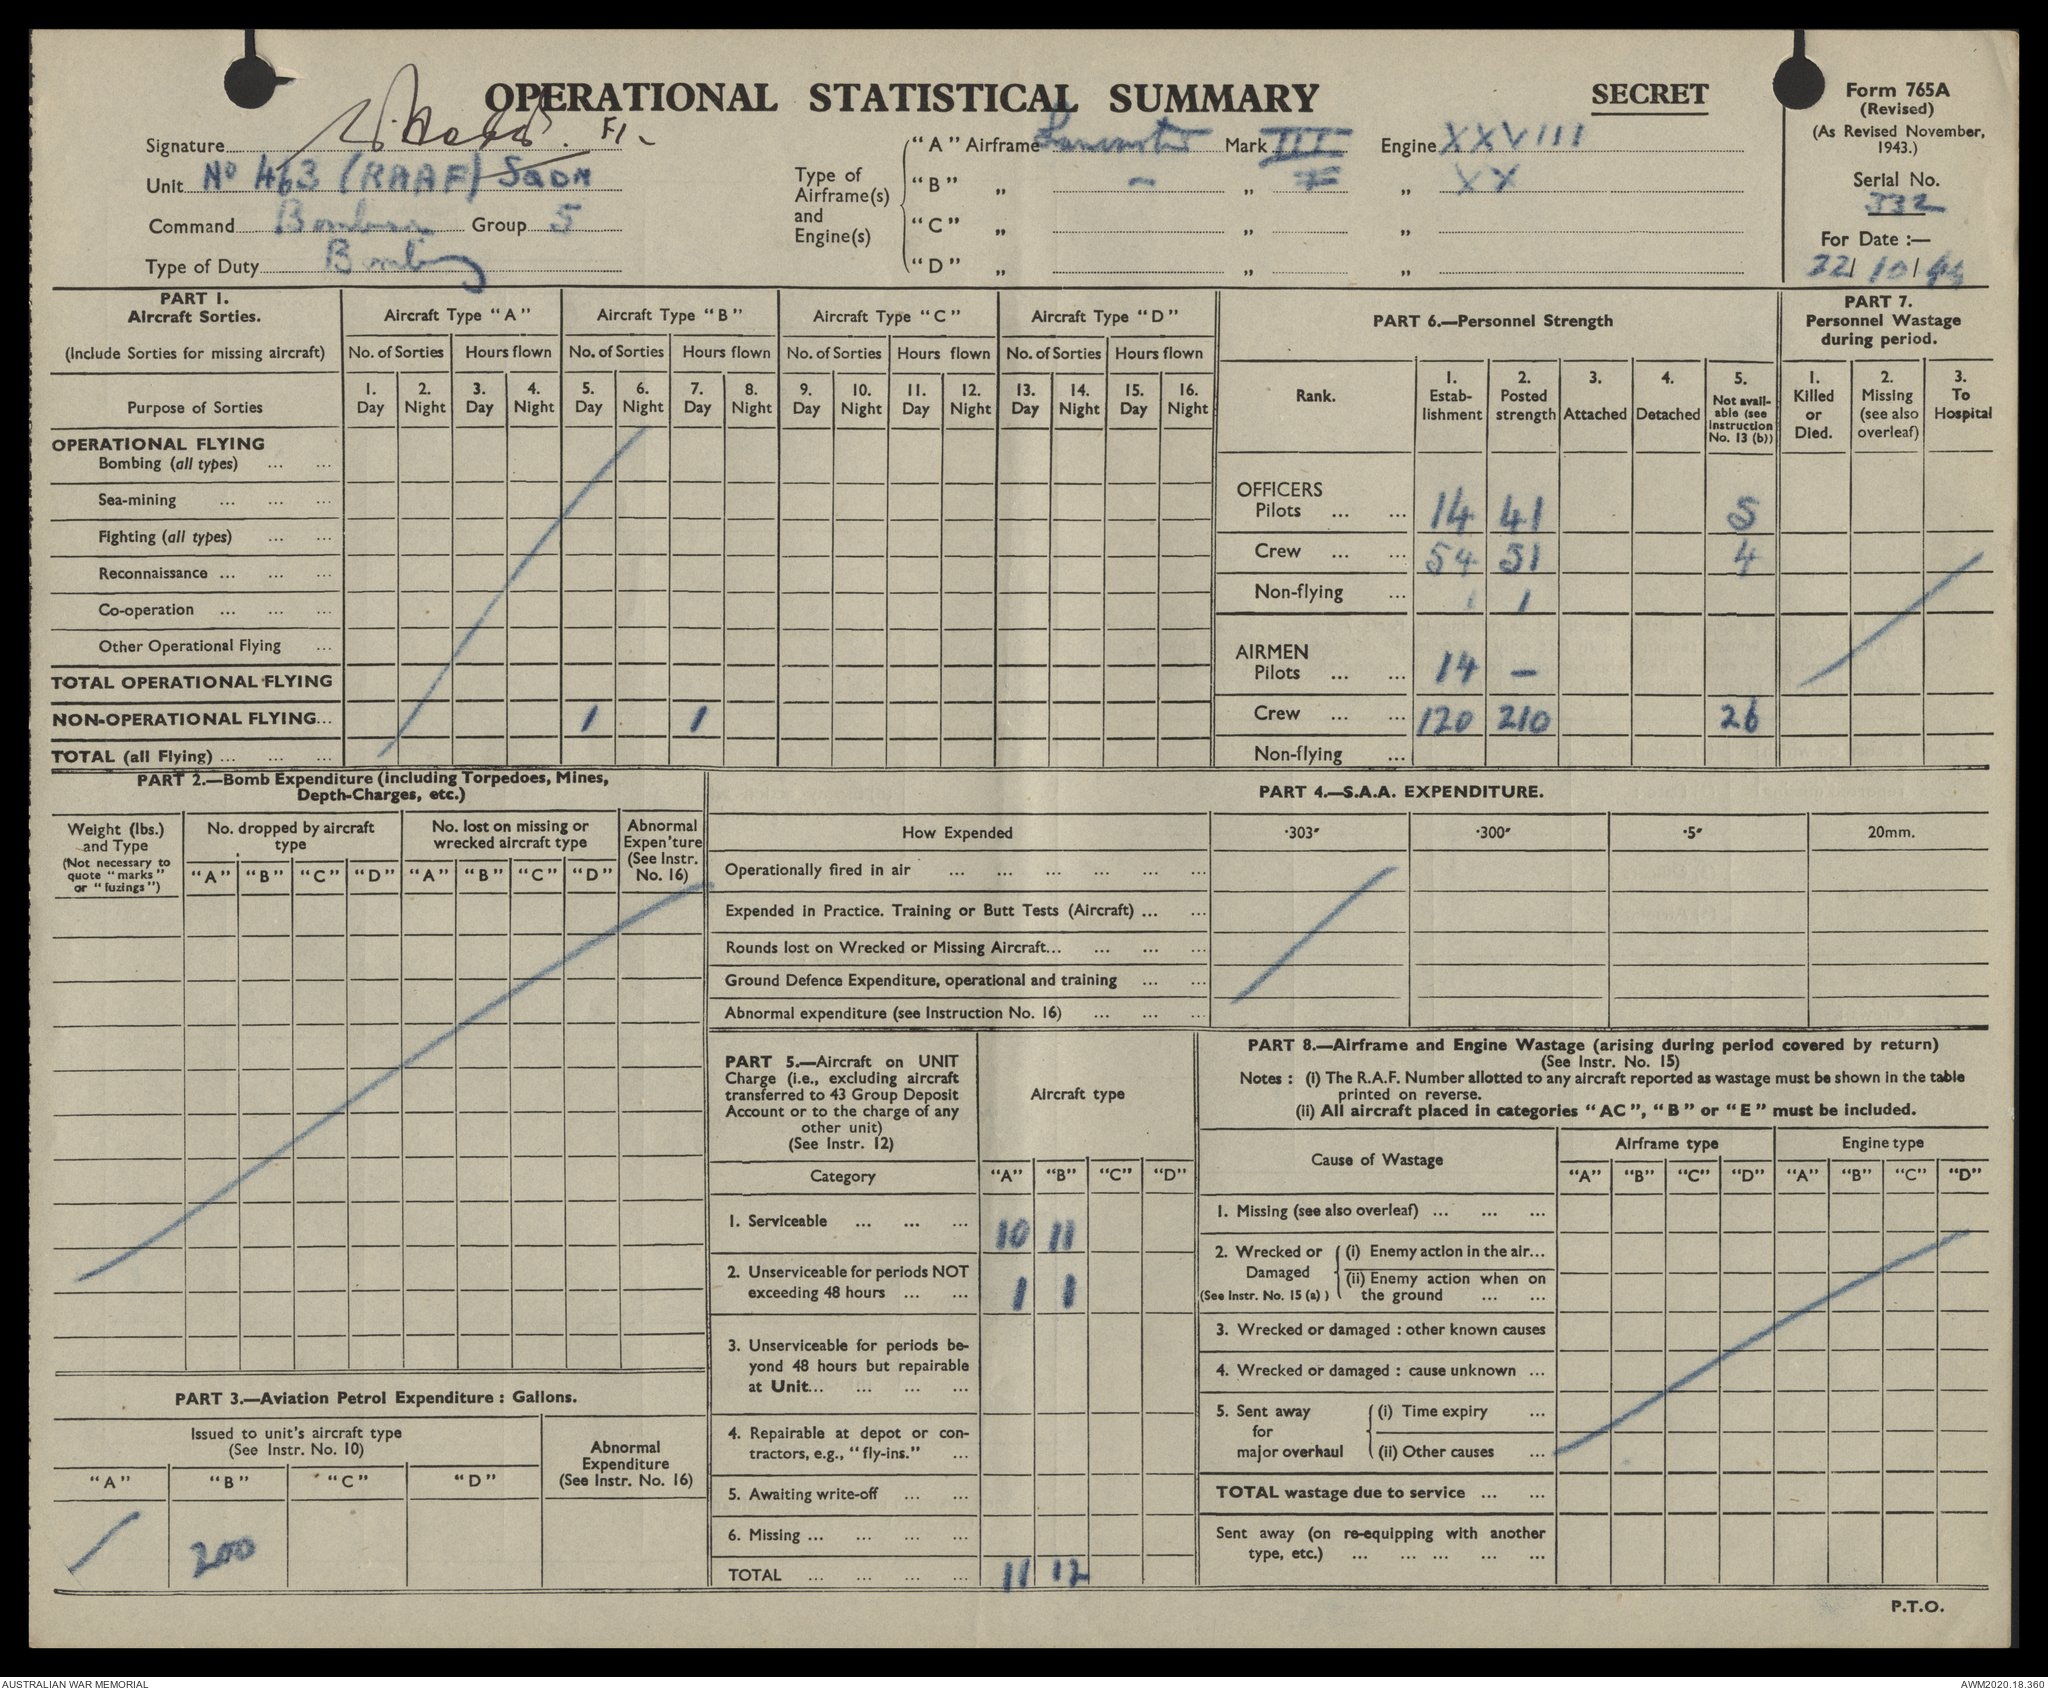 OPERATIONAL STATISTICAL SUMMARY
SECRET
Form 765A
(Revised)
(As Revised November,
1943.)
Serial No.
332
For Date :—
22/ 10 / 44
Signature
Unit No 463 (RAAF) Sqdn
Command Bomber Group 5
Type of Duty Bombing
Type of
Airframe(s)
and
Engine(s)
"A" Airframe Lancaster Mark III Engine XXVIII
"B" „ — „ I „ XX
"C" „ „ „
"D" „ „ „
PART 1.
Aircraft Sorties.
(Include Sorties for missing aircraft)
Aircraft Type "A" Aircraft Type "B" Aircraft Type "C" Aircraft Type "D"
No. of Sorties Hours flown No. of Sorties Hours flown No. of Sorties Hours flown No. of Sorties Hours flown
1. 2. 3. 4. 5. 6. 7. 8. 9. 10. 11. 12. 13. 14. 15. 16.
Purpose of Sorties Day Night Day Night Day Night Day Night Day Night Day Night Day Night Day Night
OPERATIONAL FLYING
Bombing (all types) ... ...
Sea-mining ... ... ...
Fighting (all types) ... ...
Reconnaissance ... ... ...
Co-operation ... ... ...
Other Operational Flying ...
TOTAL OPERATIONAL FLYING
NON-OPERATIONAL FLYING... 1 1
TOTAL (all Flying) ... ... ...
PART 6.—Personnel Strength
Rank.
1. Estab-lishment
2. Posted strength
3. Attached
4. Detached
5. Not avail-able (see Instruction No. 13 (b))
OFFICERS
Pilots ... ... 14 41 5
Crew ... ... 54 51 4
Non-flying ... 1 1
AIRMEN
Pilots ... ... 14 —
Crew ... ... 120 210 26
Non-flying ...
PART 7.
Personnel Wastage
during period.
1. Killed or Died.
2. Missing (see also overleaf)
3. To Hospital
PART 2.—Bomb Expenditure (including Torpedoes, Mines,
Depth-Charges, etc.)
Weight (lbs.)
and Type
(Not necessary to
quote "marks"
or "fuzings")
No. dropped by aircraft
type
No. lost on missing or
wrecked aircraft type
Abnormal
Expen'ture
(See Instr.
No. 16)
"A" "B" "C" "D" "A" "B" "C" "D"
PART 4.—S.A.A. EXPENDITURE.
How Expended ·303″ ·300″ ·5″ 20mm.
Operationally fired in air ... ... ... ... ... ...
Expended in Practice. Training or Butt Tests (Aircraft) ... ...
Rounds lost on Wrecked or Missing Aircraft... ... ... ...
Ground Defence Expenditure, operational and training ... ...
Abnormal expenditure (see Instruction No. 16) ... ... ...
PART 3.—Aviation Petrol Expenditure : Gallons.
Issued to unit's aircraft type
(See Instr. No. 10)
Abnormal
Expenditure
(See Instr. No. 16)
"A" "B" "C" "D"
200
PART 5.—Aircraft on UNIT
Charge (i.e., excluding aircraft
transferred to 43 Group Deposit
Account or to the charge of any
other unit)
(See Instr. 12)
Aircraft type
Category "A" "B" "C" "D"
1. Serviceable ... ... ... 10 11
2. Unserviceable for periods NOT
exceeding 48 hours ... ... 1 1
3. Unserviceable for periods be-
yond 48 hours but repairable
at Unit... ... ... ...
4. Repairable at depot or con-
tractors, e.g., "fly-ins." ...
5. Awaiting write-off ... ...
6. Missing ... ... ... ...
TOTAL ... ... ... ... 11 12
PART 8.—Airframe and Engine Wastage (arising during period covered by return)
(See Instr. No. 15)
Notes : (i) The R.A.F. Number allotted to any aircraft reported as wastage must be shown in the table
printed on reverse.
(ii) All aircraft placed in categories "AC", "B" or "E" must be included.
Cause of Wastage Airframe type Engine type
"A" "B" "C" "D" "A" "B" "C" "D"
1. Missing (see also overleaf) ... ... ...
2. Wrecked or Damaged (See Instr. No. 15 (a) )
(i) Enemy action in the air...
(ii) Enemy action when on
the ground ... ...
3. Wrecked or damaged : other known causes
4. Wrecked or damaged : cause unknown ...
5. Sent away for major overhaul
(i) Time expiry ...
(ii) Other causes ...
TOTAL wastage due to service ... ...
Sent away (on re-equipping with another
type, etc.) ... ... ... ... ...
P.T.O.
AUSTRALIAN WAR MEMORIAL
AWM2020.18.360